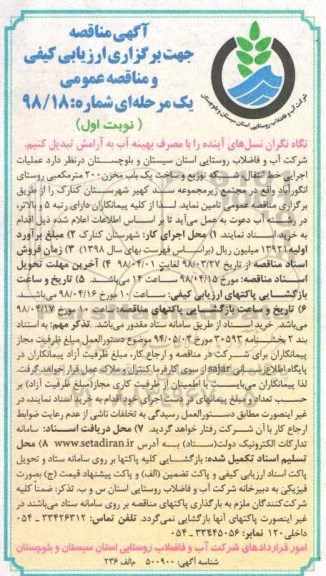 آگهی مناقصه
جهت برگزاری ارزیابی کیفی
و مناقصه عمومی
یک مرحله‌ای شماره: ۹۸/۱۸
( نوبت اول )
شرکت آب و فاضلاب روستایی استان سیستان و بلوچستان
نگاه نگران نسل‌های آینده را با مصرف بهینه آب به آرامش تبدیل کنیم.
شرکت آب و فاضلاب روستایی استان سیستان و بلوچستان درنظر دارد عملیات
اجرایی خط انتقال، شبکه توزیع و ساخت یک باب مخزن ۲۰۰ مترمکعبی روستای
انگورآباد واقع در مجتمع زیرمجموعه سد کهیر شهرستان کنارک را از طریق
برگزاری مناقصه عمومی تامین نماید. لذا از کلیه پیمانکاران دارای رتبه ۵ و بالاتر،
در رشته آب دعوت به عمل می‌آید تا بر اساس اطلاعات اعلام شده ذیل اقدام
به خرید اسناد نمایند. ۱) محل اجرای کار: شهرستان کنارک ۲) مبلغ برآورد
اولیه: ۱۳۹۲۱ میلیون ریال (براساس فهرست بهای سال ۱۳۹۸) ۳) زمان فروش
اسناد مناقصه: از تاریخ ۹۸/۰۳/۲۷ لغایت ۹۸/۰۴/۰۱ ۴) آخرین مهلت تحویل
اسناد مناقصه: مورخ ۹۸/۰۴/۱۵ ساعت ۱۴ می‌باشد. ۵) تاریخ و ساعت
بازگشایی پاکتهای ارزیابی کیفی: ساعت ۱۰ مورخ ۹۸/۰۴/۱۶ می‌باشد.
۶) تاریخ و ساعت بازگشایی پاکتهای مناقصه: ساعت مورخ ۹۸/۰۴/۱۷
می‌باشد. خرید اسناد از طریق سامانه ستاد مقدور می‌باشد. تذکر مهم: به استناد
بند ۲ بخشنامه ۳۰۵۹۳ مورخ ۹۴/۰۵/۰۴ موضوع دستورالعمل مبلغ ظرفیت مجاز
پیمانکاران برای شرکت در مناقصه و ارجاع کار، مبلغ ظرفیت آزاد پیمانکاران در
پایگاه اطلاع رسانی sajar از سوی کارفرما کنترل و ملاک عمل قرار خواهد گرفت.
لذا پیمانکاران می‌بایست با اطمینان از ظرفیت کاری مجاز (مبلغ ظرفیت آزاد) بر
حسب تعداد و مبلغ پیمانهای در دست اجرای خود اقدام به خرید اسناد نمایند، در
غیر اینصورت مطابق دستورالعمل رسیدگی به تخلفات ناشی از عدم رعایت ضوابط
ارجاع کار با آن شرکت رفتار خواهد گردید. ۷) محل دریافت اسناد: سامانه
تدارکات الکترونیک دولت (ستاد) به آدرس www.setadiran.ir ۸) محل
تسلیم اسناد تکمیل شده: بازگشایی کلیه پاکتها بر روی سامانه ستاد و تحویل
پاکت اسناد ارزیابی کیفی و پاکت تضمین (الف) و پاکت پیشنهاد قیمت (ج) بصورت
فیزیکی به دبیرخانه شرکت آب و فاضلاب روستایی استان س و ب. تذکر: ضمناً کلیه
شرکت‌کنندگان ملزم به بارگذاری پاکتهای مناقصه بر روی سامانه ستاد می‌باشند در
غیر اینصورت پاکتهای آنها بازگشایی نمی‌گردد. تلفن تماس: ۳۳۴۲۶۳۱۲ - ۰۵۴
داخلی ۱۲۰ نمابر: ۳۳۴۴۵۰۵۶ - ۰۵۴
امور قراردادهای شرکت آب و فاضلاب روستایی استان سیستان و بلوچستان
شناسه آگهی: ۵۰۰۹۰۰ م‌الف ۲۳۶